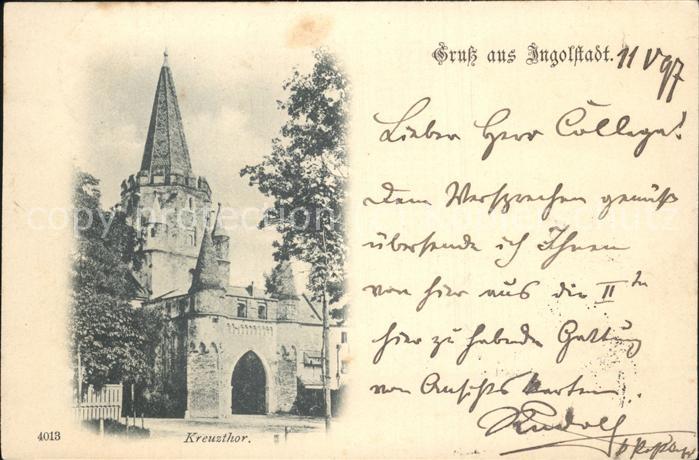 Gruß aus Ingolstadt. 11 V 97
Lieber Herr College!
Dem Versprechen gemäß
übersende ich Ihnen
von hier aus die II te
hier zu habende Gattung
von Ansichtskarten.
Rudolf
4013
Kreuzthor.